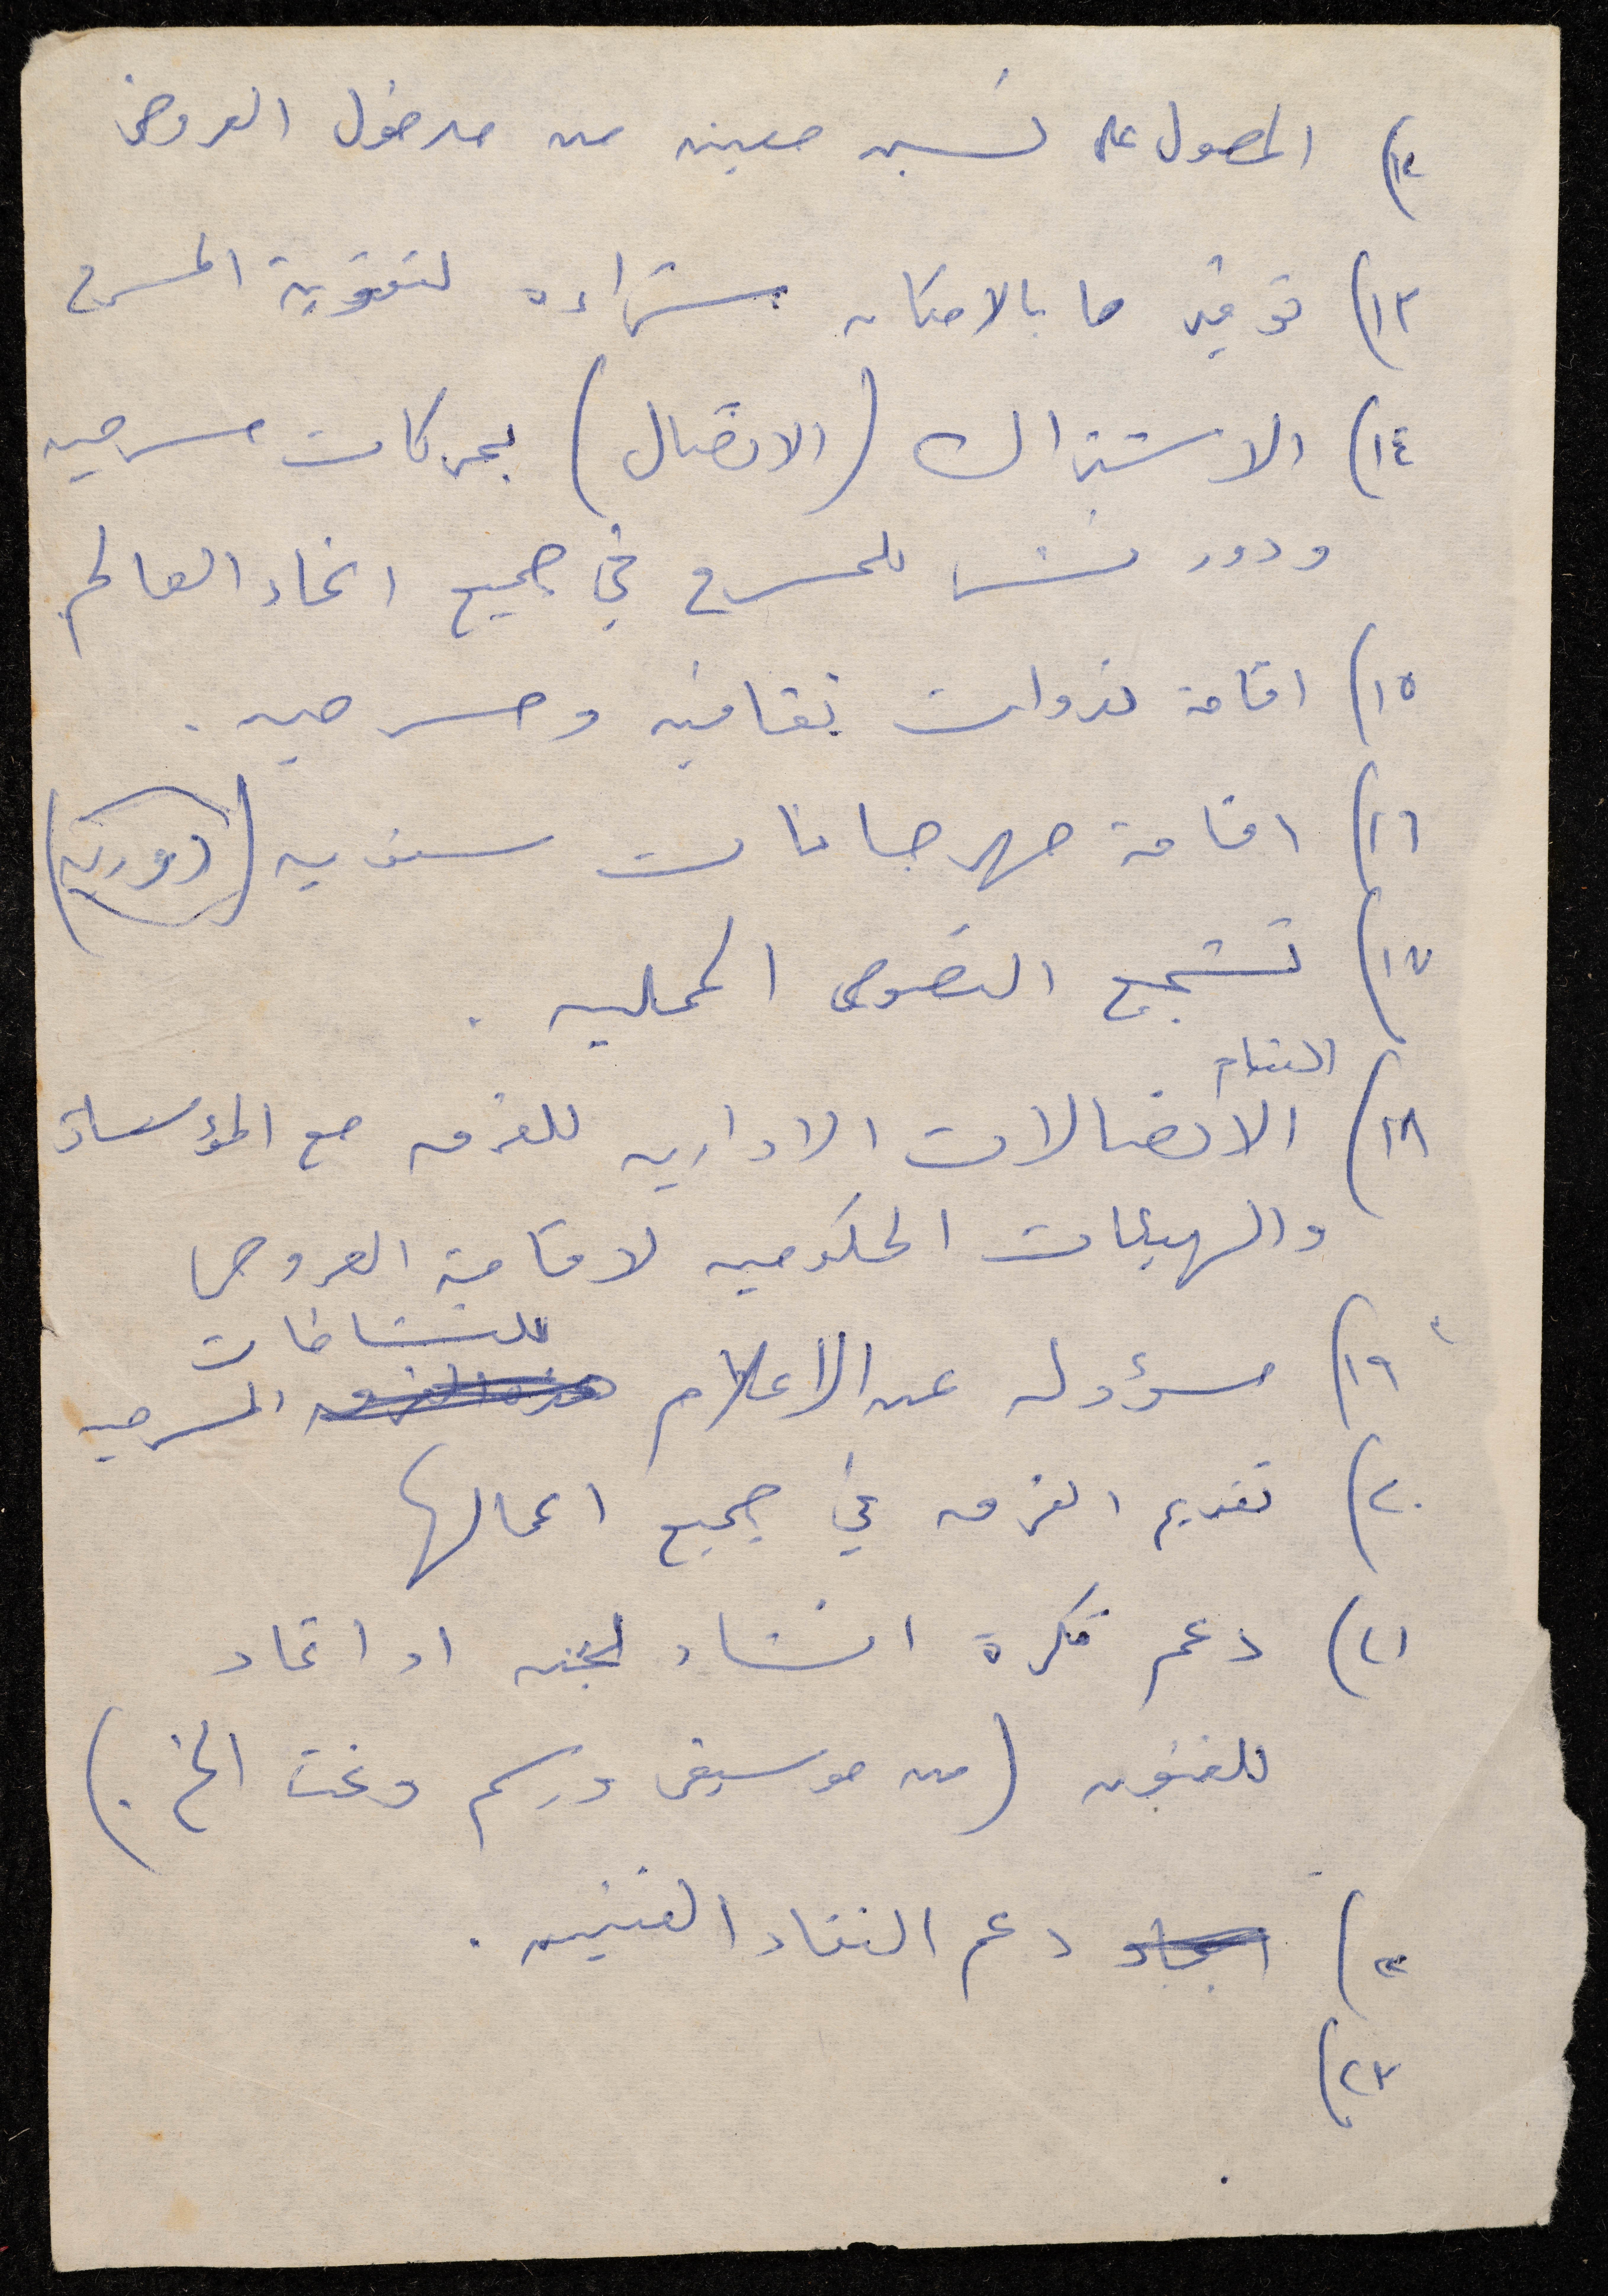 ١٢) الحصول على نسبه معينه من مدخول العروض
١٣) توفير ما بالامكان شراءه لتقوية المسرح
١٤) الاشتراك (الاتصال) بحركات مسرحيه
ودور نشر للمسرح في جميع انحاء العالم
١٥) اقامة ندوات ثقافيه ومسرحيه .
١٦) اقامة مهرجانات سنويه (دوريه)
١٧) تشجيع النصوص المحليه .
القيام
١٨) الاتصالات الاداريه للفرق مع المؤسسات
والهيئات الحكوميه لاقامة العروض
للنشاطات
١٩) مسؤوله عن الاعلام المسرحيه
٢٠) تقديم الفرق في جميع اعمالها
٢١) دعم فكرة انشاء لجنه او اتحاد
للفنون (من موسيقى ورسم ونحت الخ .)
٢٢) ايجاد دعم النقاد الفنيين .
٢٣)